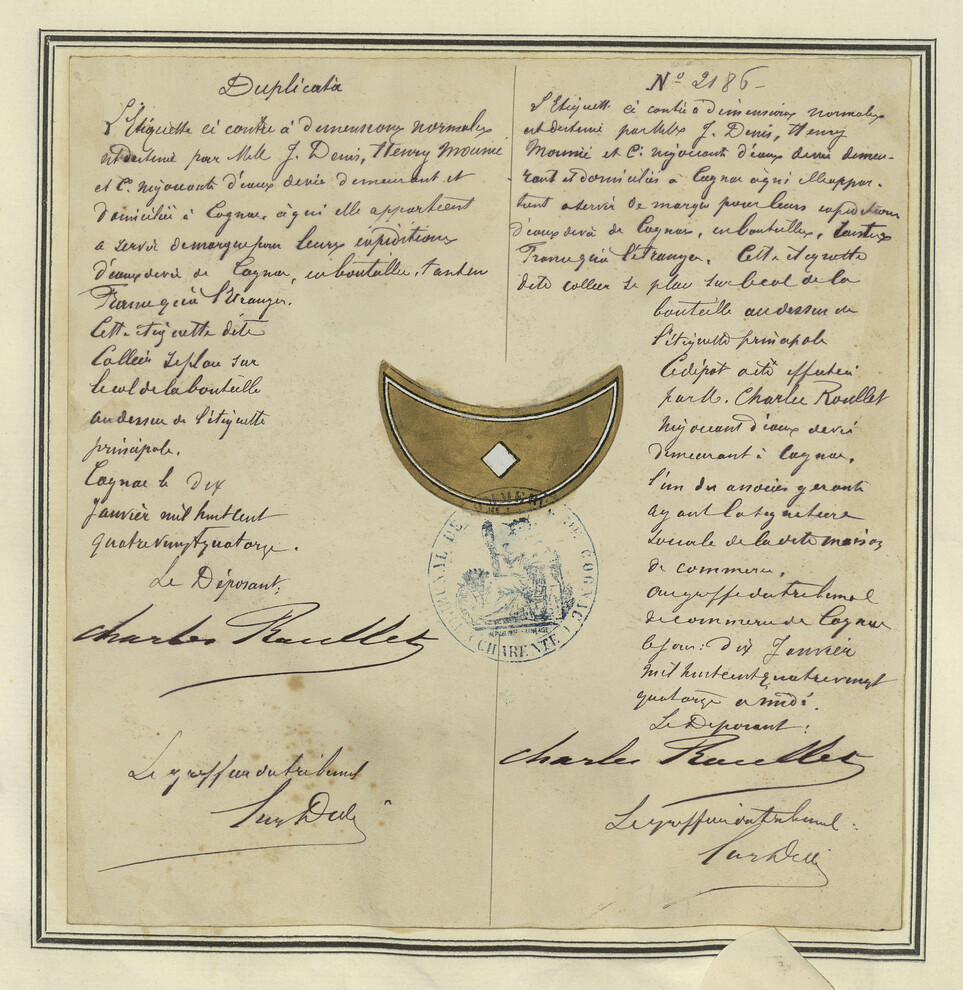 Duplicata
L'Etiquette ci contre à dimensions normales
est destiné par MM J. Denis, Henry Mounié
et C. négociants d'eaux de vie demeurant et
domiciliés à Cognac, à qui elle appartient
a servir de marque pour leurs expéditions
d'eaux de vie de Cognac, en bouteilles, tant en
France qu'à l'étranger.
Cette étiquette dite
Collier se place sur
le col de la bouteille
au dessus de l'étiquette
principale.
Cognac le dix
Janvier mil huit cent
quatre vingt quatorze.
Le Déposant,
Charles Roullet
Le greffier du tribunal
N° 2186
L'Etiquette ci contre à dimensions normales
est destiné par MM J. Denis, Henry
Mounié et C. négociants d'eaux de vie demeu-
rant et domiciliés à Cognac à qui elle appar-
tient a servir de marque pour leurs expéditions
d'eaux de vie de Cognac, en bouteilles, tant en
France qu'à l'étranger. Cette étiquette
dite collier se place sur le col de la
bouteille au dessus de
l'étiquette principale
Ce dépôt a été effectué
par M. Charles Roullet
négociant d'eaux de vie
demeurant à Cognac,
l'un des associés gérants
ayant la signature
sociale de la dite maison
de commerce,
au greffe du tribunal
de commerce de Cognac
le jour: dix Janvier
mil huit cent quatre vingt
quatorze a midi.
Le Déposant:
Charles Roullet
Le greffier du tribunal.
TRIBUNAL DE COMMERCE DE COGNAC
CHARENTE